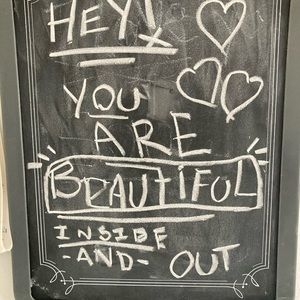 HEY!
YOU
ARE
BEAUTIFUL
INSIDE
-AND- OUT